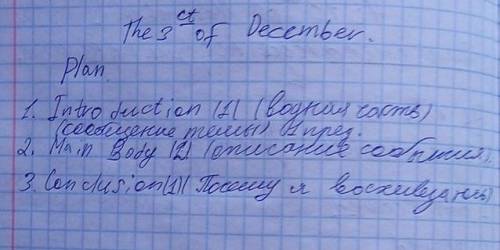 The 3 ct of December.
Plan
1. Introduction (1) (водная часть)
(сообщение темы) 1 пред.
2. Main Body (2) (описание события)
3. Conclusion (1) (Почему я восхищаюсь)